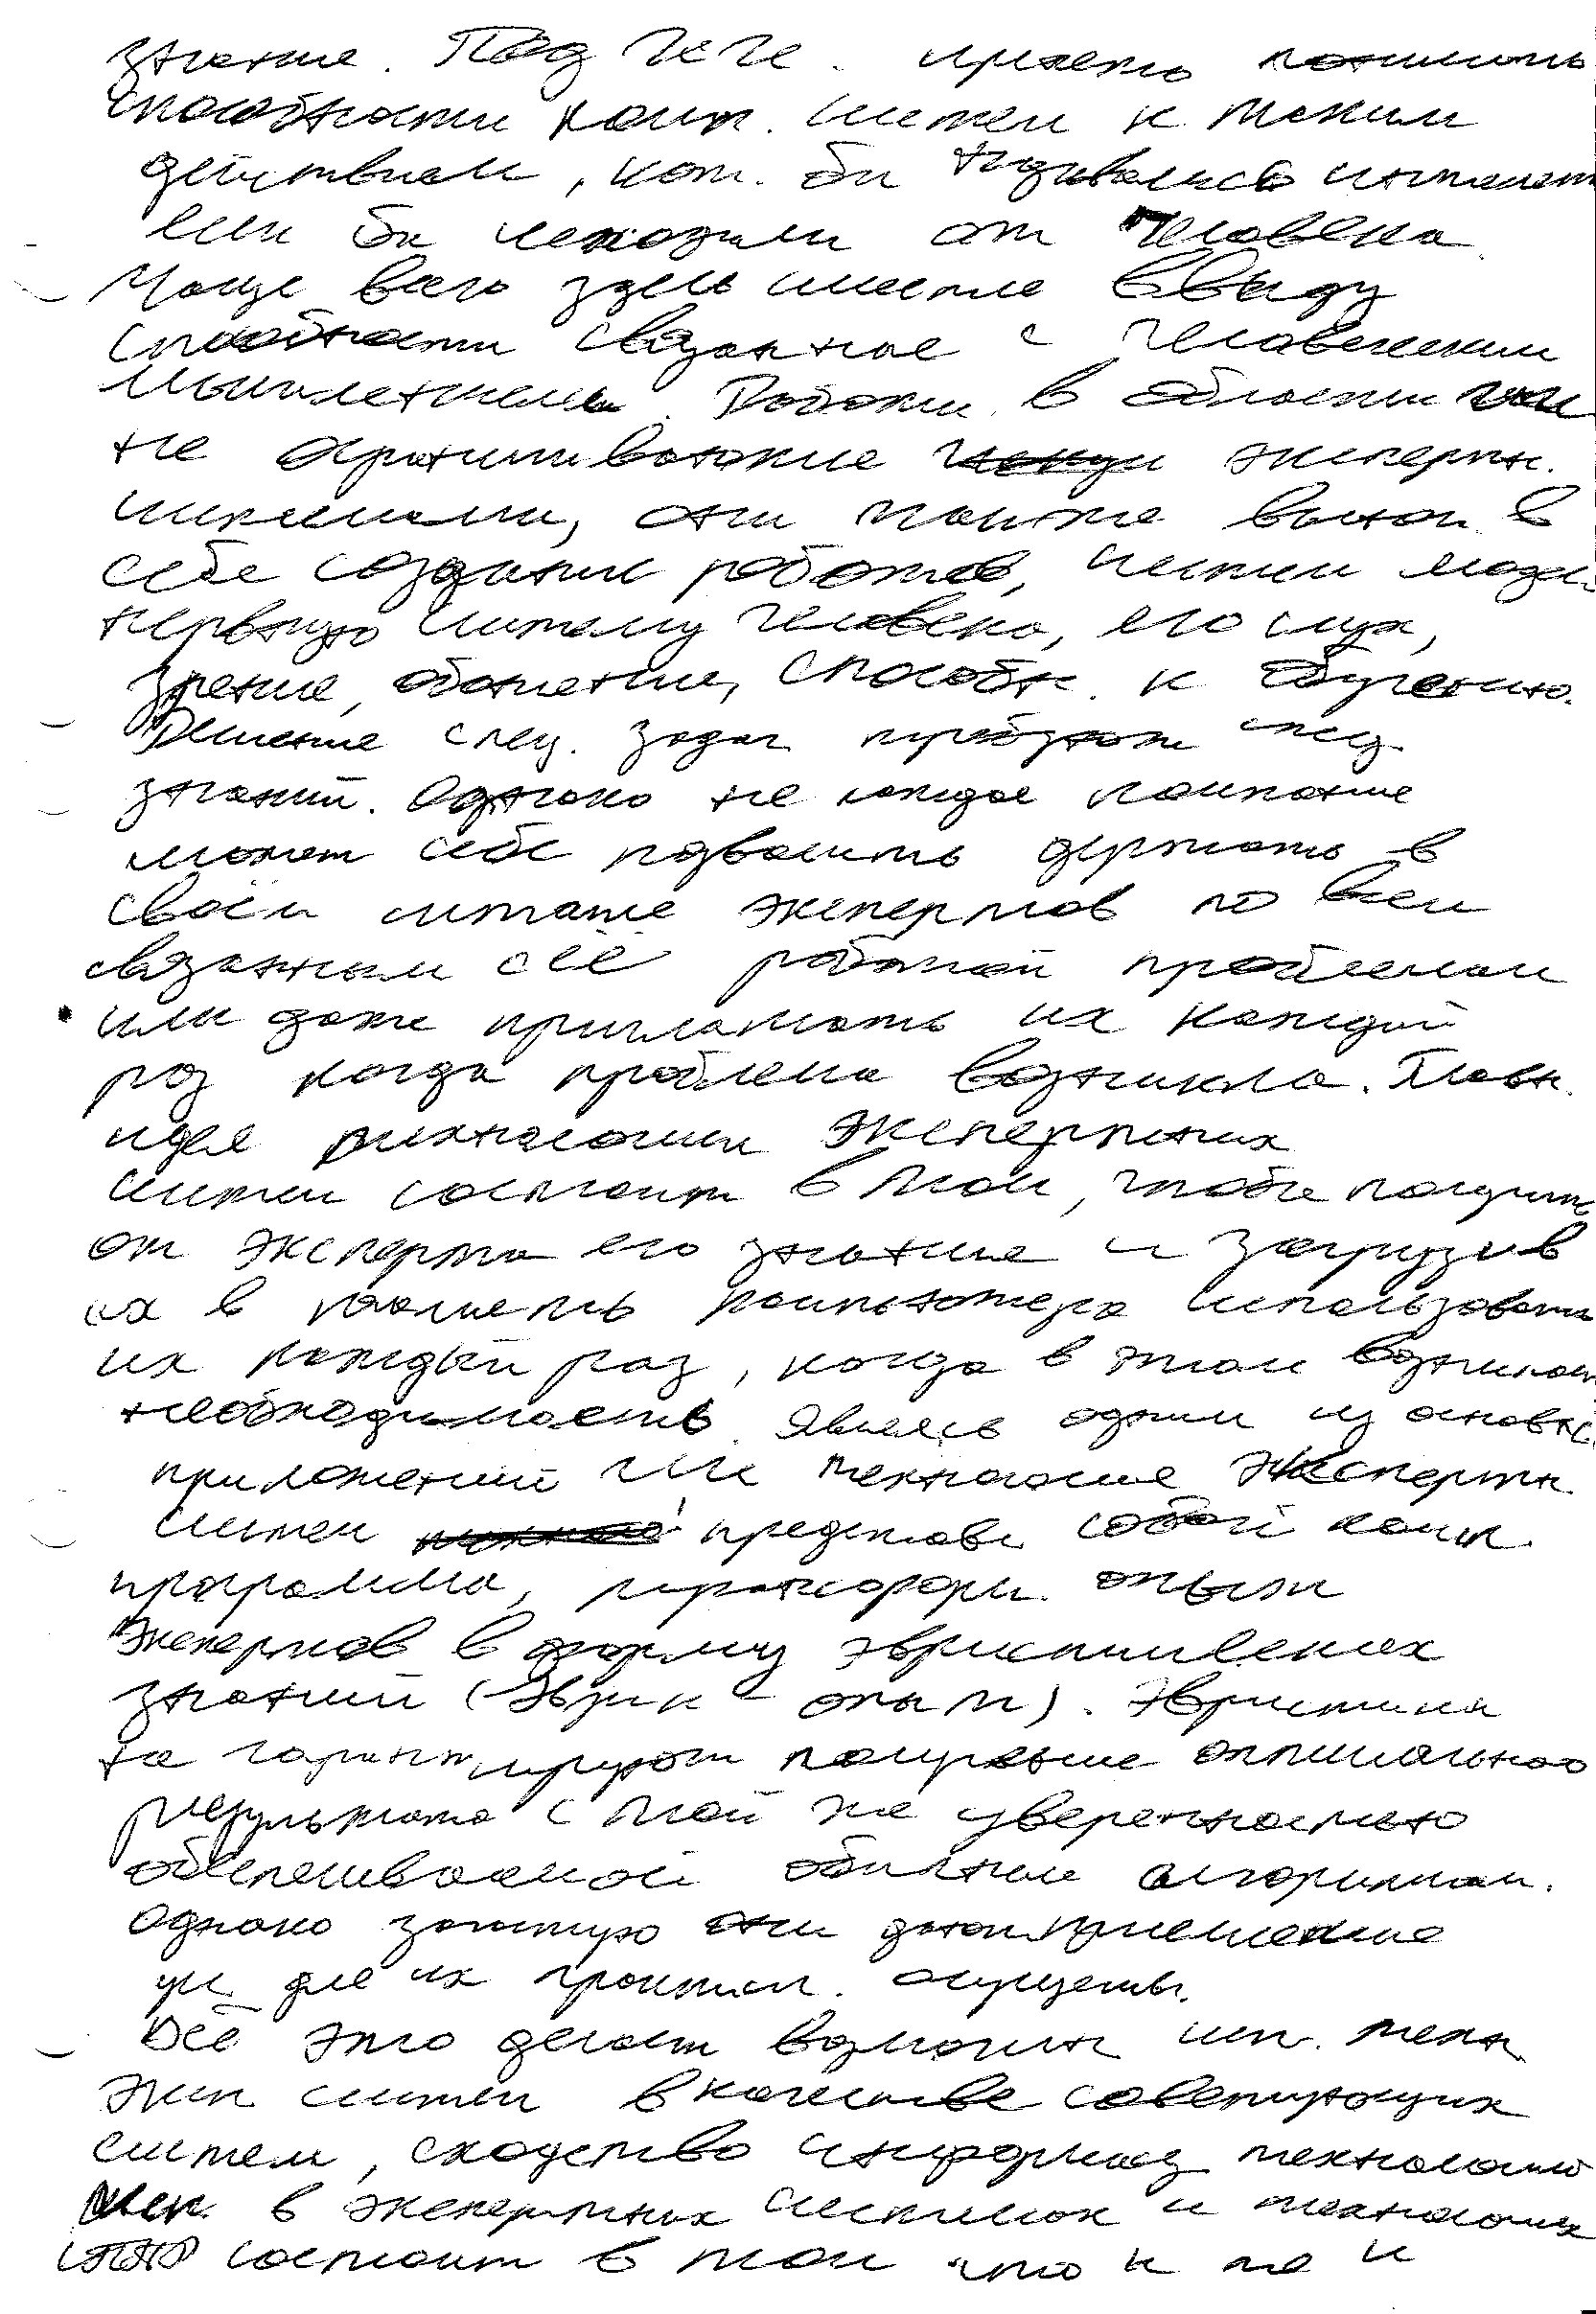 знание. Под ИИ. принято понимать
способности комп. систем к таким
действиям, кот. бы назывались интеллект
если бы исходили от человека
Чаще всего здесь имеется ввиду
способности связанное с человеческим
мышлением. Работы в области ИИ
не ограничиваются экспертн.
системами, они также включ. в
себе создание роботов, систем модел.
нервную систему человека, его слух,
зрение, обоняние, способн. к обучению.
Решение спец. задач требует спец.
знаний. Однако не каждая компания
может себе позволить держать в
своём штате экспертов по всем
связанным с её работой проблемам
или даже приглашать их каждый
раз когда проблема возникла. Главн.
идея технологии экспертных
систем состоит в том, чтобы получить
от эксперта его знание и загрузив
их в память компьютера использовать
их каждый раз, когда в этом возникает
необходимость. Являясь одним из основн.
приложений ИИ технология экспертн.
систем представ. собой комп.
программы, трансформ. опыт
экспертов в форму эвристических
знаний (Эврик - опыт). Эвристики
не гарантируют получение оптимального
результата с той же уверенностью
обеспечиваемой обычным алгоритмам.
Однако зачастую они дают решение
для их практич. осуществ.
Всё это делает возможн исп. техн.
эксп систем в качестве советующих
систем, сходство информац технологий
исп. в экспертных системах и технологиях
состоит в том что и те и